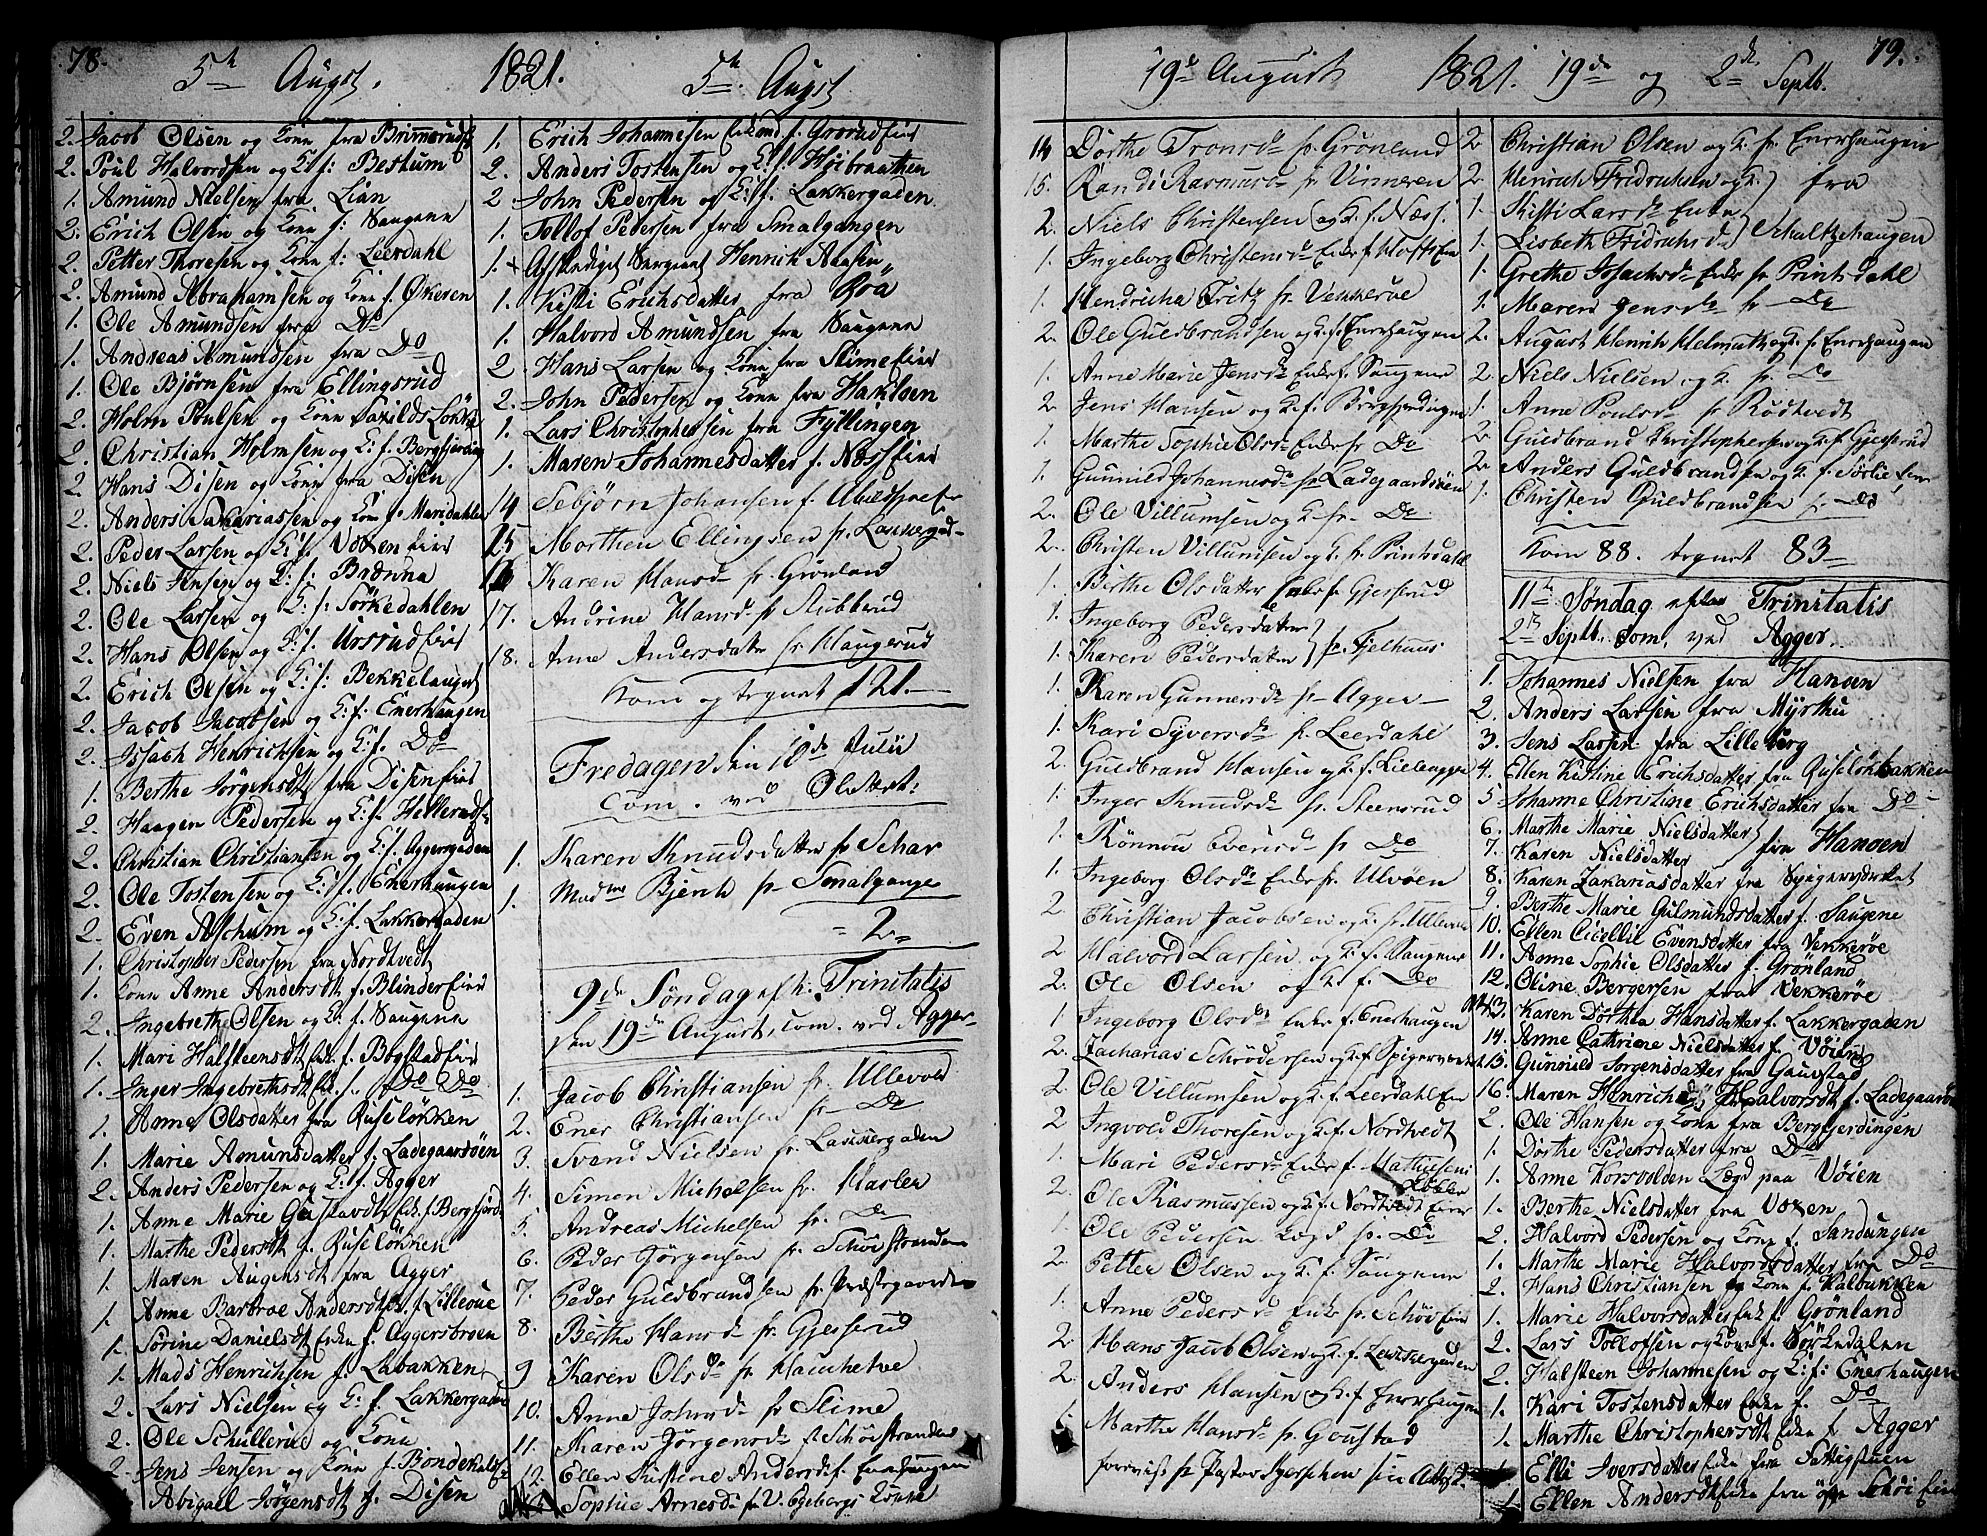 78.
5th Augst. 1821. 5th Augst
2. Jacob Olsen og Kone fra Brimerud
2. Poul Halvordsen og K: f: Bestum
1. Amund Nielsen fra Lian
2. Erich Olsen og Kone f: Saugene
2. Petter Thoresen og Kone f: Leerdahl
2. Amund Abrahamsen og Kone f. Økeren
1. Ole Amundsen fra Do
1. Andreas Amundsen fra Do
1. Ole Bjørnsen fra Ellingsrud
2. Holm Poulsen og Kone Saxilds Løkke
2. Christian Holmsen og K: f. Bergfjerding
2. Hans Disen og Kone fra Disen
2. Anders Zakariassen og Kone f. Maridahlen
2. Peder Larsen og K: f. Voxen Eiet
2. Niels Jensen og K: f: Brønna
2. Ole Larsen og K: f: Sørkedahlen
2. Hans Olsen og K: f. Ursrud Eiet
2. Erich Olsen og K: f: Bekkelauget
2. Jacob Jacobsen og K: f: Enerhaugen
2. Issach Henrichsen og K: f. Do
1. Berthe Jørgensdt fra Disen Eiet
2. Haagen Pedersen og K: f. Hellerud
2. Christian Christiansen og K: f. Aggergaden
2. Ole Tostensen og K: f. Enerhaugen
2. Even Aschum og K: f. Lakkergaden
1. Christopher Pedersen fra Nordtvedt
1. Kone Anne Andersdt f. Blinder Eiet
2. Ingebrethe Olsen og K: f. Saugene
1. Mari Halsteensdt Enke f. Bogstad Eiet
1. Inger Ingebrethsdt Enke f. Do Do
1. Anne Olsdatter fra Ruseløkken
1. Marie Amunsdatter f. Ladegaarsøen
2. Anders Pedersen og K: f. Agger
1. Anne Marie Gustavsdt Enke f. Bergfjerd:
1. Marthe Pedersdt f. Ruseløkken
1. Maren Augensdt fra Agger
1. Anne Barbroe Andersdt Enke f. Lilleoue
1. Sørine Danielsdt Enke f. Aggersbroen
1. Mads Henrichsen f. Labakken
2. Lars Nielsen og K: f. Lakkergaden
2. Ole Schullerud og Kone
2. Jens Jensen og Kone f. Bondekalf
Abigael Jørgensdt f. Disen
1. Erich Johannesen Enkemd f. Grorud Eiet
2. Anders Tostensen og K: f. Høibraathen
2 John Pedersen og K: f. Lakkergaden
1. Tollof Pedersen fra Smalgangen
1. Afskediget Sargeant Henrich Aasen
1. Kisti Erichsdatter fra Roa
1. Halvord Amundsen fra Saugene
2. Hans Larsen og Kone fra Slime Eiet
2. John Pedersen og Kone fra Hakloen
1. Lars Christophersen fra Fyllingen
1. Maren Johannesdatter f. Nøss Eiet
14 Sebjørn Johansen f.
25 Morthen Ellingsen fr. Lakkergad
16 Karen Hansd fr. Grønland
17. Andrine Hansd fr Stubberud
18. Anne Andersdatr fr Haugerud
Kom og tegnet 121.
Fredagen den 10de Julii
Com. ved Oltæt:
1. Karen Knudsdatter fr Schar
1. Madme Bjerch fr Smalgange
= 2 =
9de Søndag eft. Trinitatis
den 19de August, Com. ved Agger
1. Jacob Christiansen fr. Ullevold
2. Ener Christiansen fr Do
3. Svend Nielsen fr. Lakkergaden
4. Simon Michelsen fr. Hasler
5. Andreas Michelsen fr. Do
6. Peder Jørgensen fr. Schøistranden
7. Peder Guldbrandsen fr Præstegaarden
8. Berthe Hansd fr. Gjesserud
9 Karen Olsdr fr Hauchetve
10. Anne Johnsd fr Slime
11. Karen Jørgensdr f. Schøistranden
12. Ellen Kirstine Andersd f. Enerhaugen
Sophie Arnesd fr V. Egebergs Løkke
79.
19de August 1821. 19de og 2de Septb.
14 Dorthe Tronsdr fr Grønland
15. Randi Rasmusd fr Vinneren
2. Niels Christensen og K. f. Næss.
1. Ingeborg Christensd Enke f. Kloft Eie
1 Hendricha Fritz fr Vekkerøe
2. Ole Guldbrandsen og K. f. Enerhaugen
1. Anne Marie Jensd Enke f. Saugene
2. Jens Hansen og K. f. Bergfjerdingen
1. Marthe Sophie Olsd Enke fr Do
1. Gunnild Johannesd fr Ladegaardsøen
2. Ole Villumsen og K. fr. Do
2. Christen Villumsen og K. fr. Printsdahl
1. Berthe Olsdatter Enke fr Gjesserud
1. Ingeborg Pedersdatter } fr. Fjelhuus
1. Karen Pedersdatter
1. Karen Gunnersd fr Agger
1. Kari Syversdr fr Leerdahl
2. Guldbrand Hansen og K. f. Lielengen
1. Inger Knudsd fr. Steensrud
1. Rønnou Evensd fr Do
1. Ingeborg Olsdr Enke fr. Ulvøen
2. Christian Jacobsen og K. fr Ullevold
2 Halvord Larsen og K. f. Saugene
2. Ole Olsen og K. f. Do
1 Ingeborg Olsdr Enke f. Enerhaugen
2. Zacharias Schrødersen og K. f. Spigerverket
2 Ole Villumsen og K. f. Leerdahl Eie
2 Ingvold Thoresen og K. f. Nordtvedt
1. Mari Pedersd Enke f. Mathiesens Løkke
2. Ole Rasmussen og K. f. Nordtvedt Eiet
1 Ole Pedersen Lægd fr. Do
2. Petter Olsen og K. f. Saugene
1. Anne Pedersd Enke fr. Schøi Eiet
2 Hans Jacob Olsen og K. f. Lakkergaden
2. Anders Hansen og K. f Enerhaugen
Marthe Hansd fr. Goustad
2 Christian Olsen og K. fr. Enerhaugen
2. Henrich Fridrichsen og K. } fra
1. Kisti Larsd Enke
1. Lisbeth Fridrichsd } Schultzehaugen
1 Grethe Issachsd Enke fr Printsdahl
1. Maren Jensd fr Do
2. August Henrich Helmuth og K. fr Enerhaugen
2. Niels Nielsen og K. fr. Do
1. Anne Poulsd fr Rødtvedt
2 Guldbrand Christophersen og K. f. Gjesserud
2. Anders Guldbrandsen og K. f. Sørlie Eie
1. Christen Guldbrandsen f. Do
Kom 88. tegnet 83
11te Søndag efter Trinitatis
2den Septb. Com. ved Agger.
1. Johannes Nielsen fra Hanoen
2. Anders Larsen fra Myrhu
3. Jens Larsen fra Lilleberg
4. Ellen Kistine Erichsdatter fra Ruseløkbakken
5 Johanne Christine Erichsdatter fra Do
6. Marthe Marie Nielsdatter } fra Hanoen
7. Karen Nielsdatter
8. Karen Zakariasdatter fra Spigerverket
9. Berthe Marie Gulmundsdatter f. Saugene
10. Ellen Cicellie Evensdatter fra Vekkerøe
11. Anne Sophie Olsdatter f. Grønland
12. Oline Bergersen fra Vekkerøe
13. Karen Dorthea Hansdatter f. Lakkergaden
14. Anne Cathrine Nielsdatter f. Vøien
15. Gunnild Jorgensdatter fra Gaustad
16. Maren Henrichs Halvorsdt f. Ladegaards
2. Ole Hansen og Kone fra Bergfjerdingen
1. Dorthe Pedersdatter fra Do
1. Anne Korsvolden Lægd paa Vøien
1. Berthe Nielsdatter fra Voxen
2. Halvord Pedersen og Kone f. Sandungen
1. Marthe Marie Halvorsdatter fra Do
2. Hans Christiansen og Kone f. Kalbakken
1. Marie Halvorsdatter Enk f. Grønland
2. Lars Tollofsen og Kone f. Sørkedalen
2. Halsteen Johannesen og K: f: Enerhaugen
1. Kari Tostensdatter Enke f. Do
1. Marthe Christophersdt Enke f Agger
Elli Iversdatter Enke fra Sattistuen
1. Ellen Andersdt Enke fra Schøi Eie